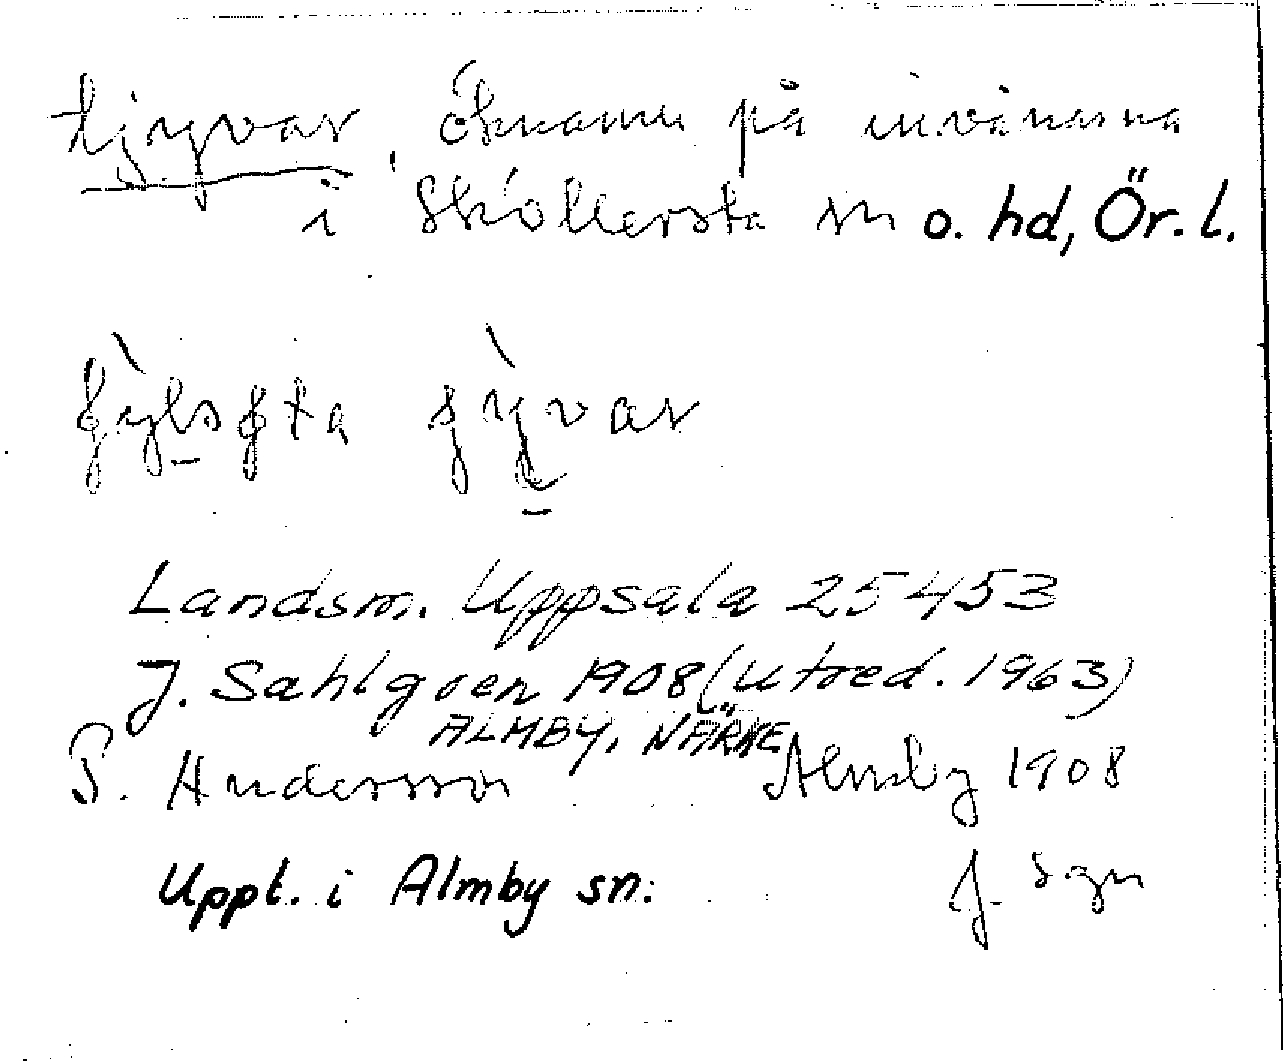 tjyvar, öknamn på invånarna
i Sköllersta sn o. hd, Ör. l.
Landsm. Uppsala 25453
J. Sahlgren 1908 (utred. 1963)
ALMBY, NÄRKE
P. Andersson Almby 1908
J. Sgn
Uppt. i Almby sn.